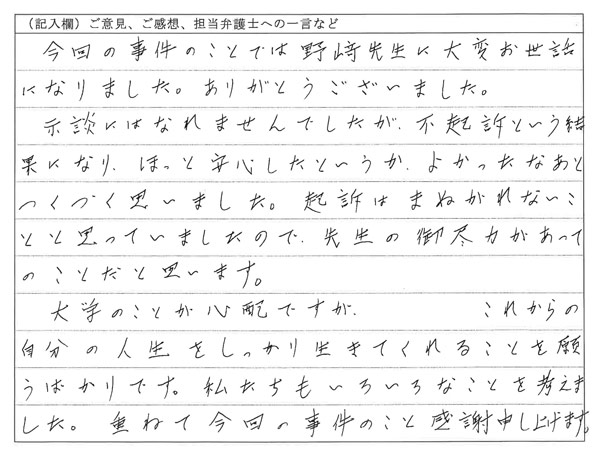 （記入欄）ご意見、ご感想、担当弁護士への一言など
今回の事件のことでは野崎先生に大変お世話
になりました。ありがとうございました。
示談にはなれませんでしたが、不起訴という結
果になり、ほっと安心したというか、よかったなあと
つくづく思いました。起訴はまぬがれないこ
とと思っていましたので、先生の御尽力があって
のことだと思います。
大学のことが心配ですが、 これからの
自分の人生をしっかり生きてくれることを願
うばかりです。私たちもいろいろなことを考えま
した。重ねて今回の事件のこと感謝申し上げます。